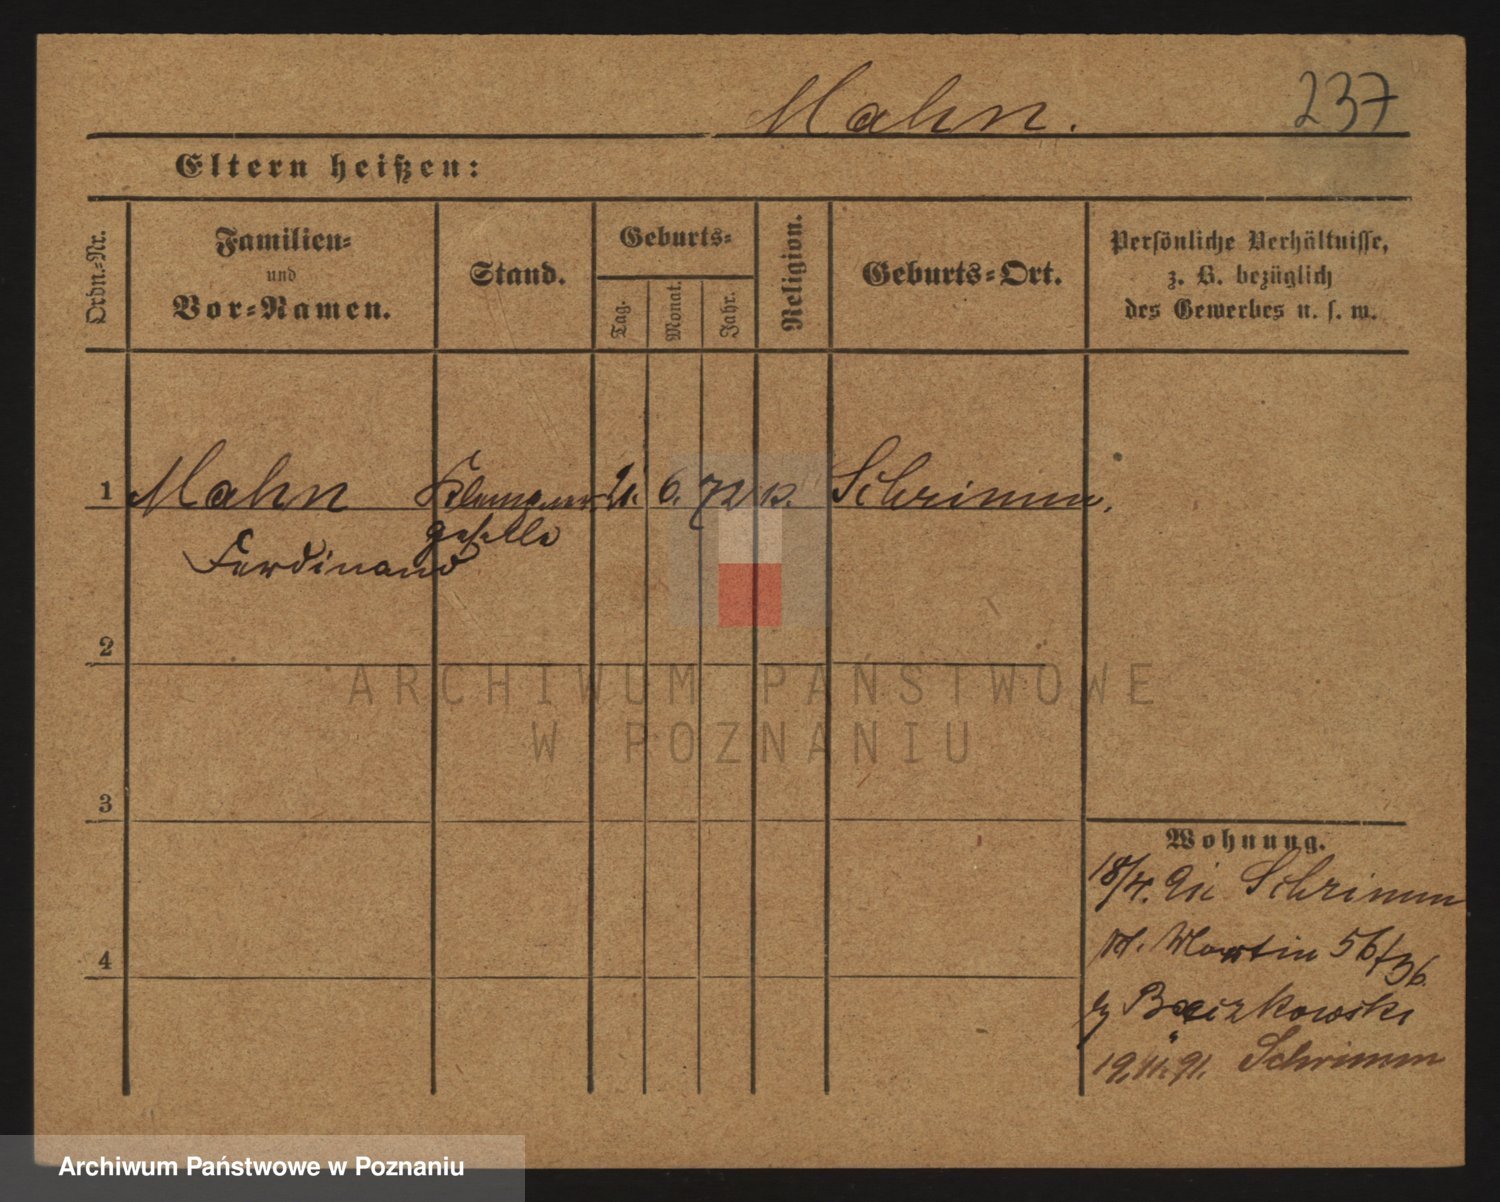 Mahn. 237
Eltern heißen:
Ordn.-Nr.
Familien-
und
Vor-Namen.
Stand.
Geburts-
Tag.
Monat.
Jahr.
Religion.
Geburts-Ort.
Persönliche Verhältnisse,
z. B. bezüglich
des Gewerbes u. s. w.
1 Mahn Klempner 21. 6. 72 Schrimm.
geselle
Ferdinand
2
ARCHIWUM PAŃSTWOWE
W POZNANIU
3
Wohnung.
18/4. 91 Schrimm
St. Martin 56/
4
Schrimm
Archiwum Państwowe w Poznaniu